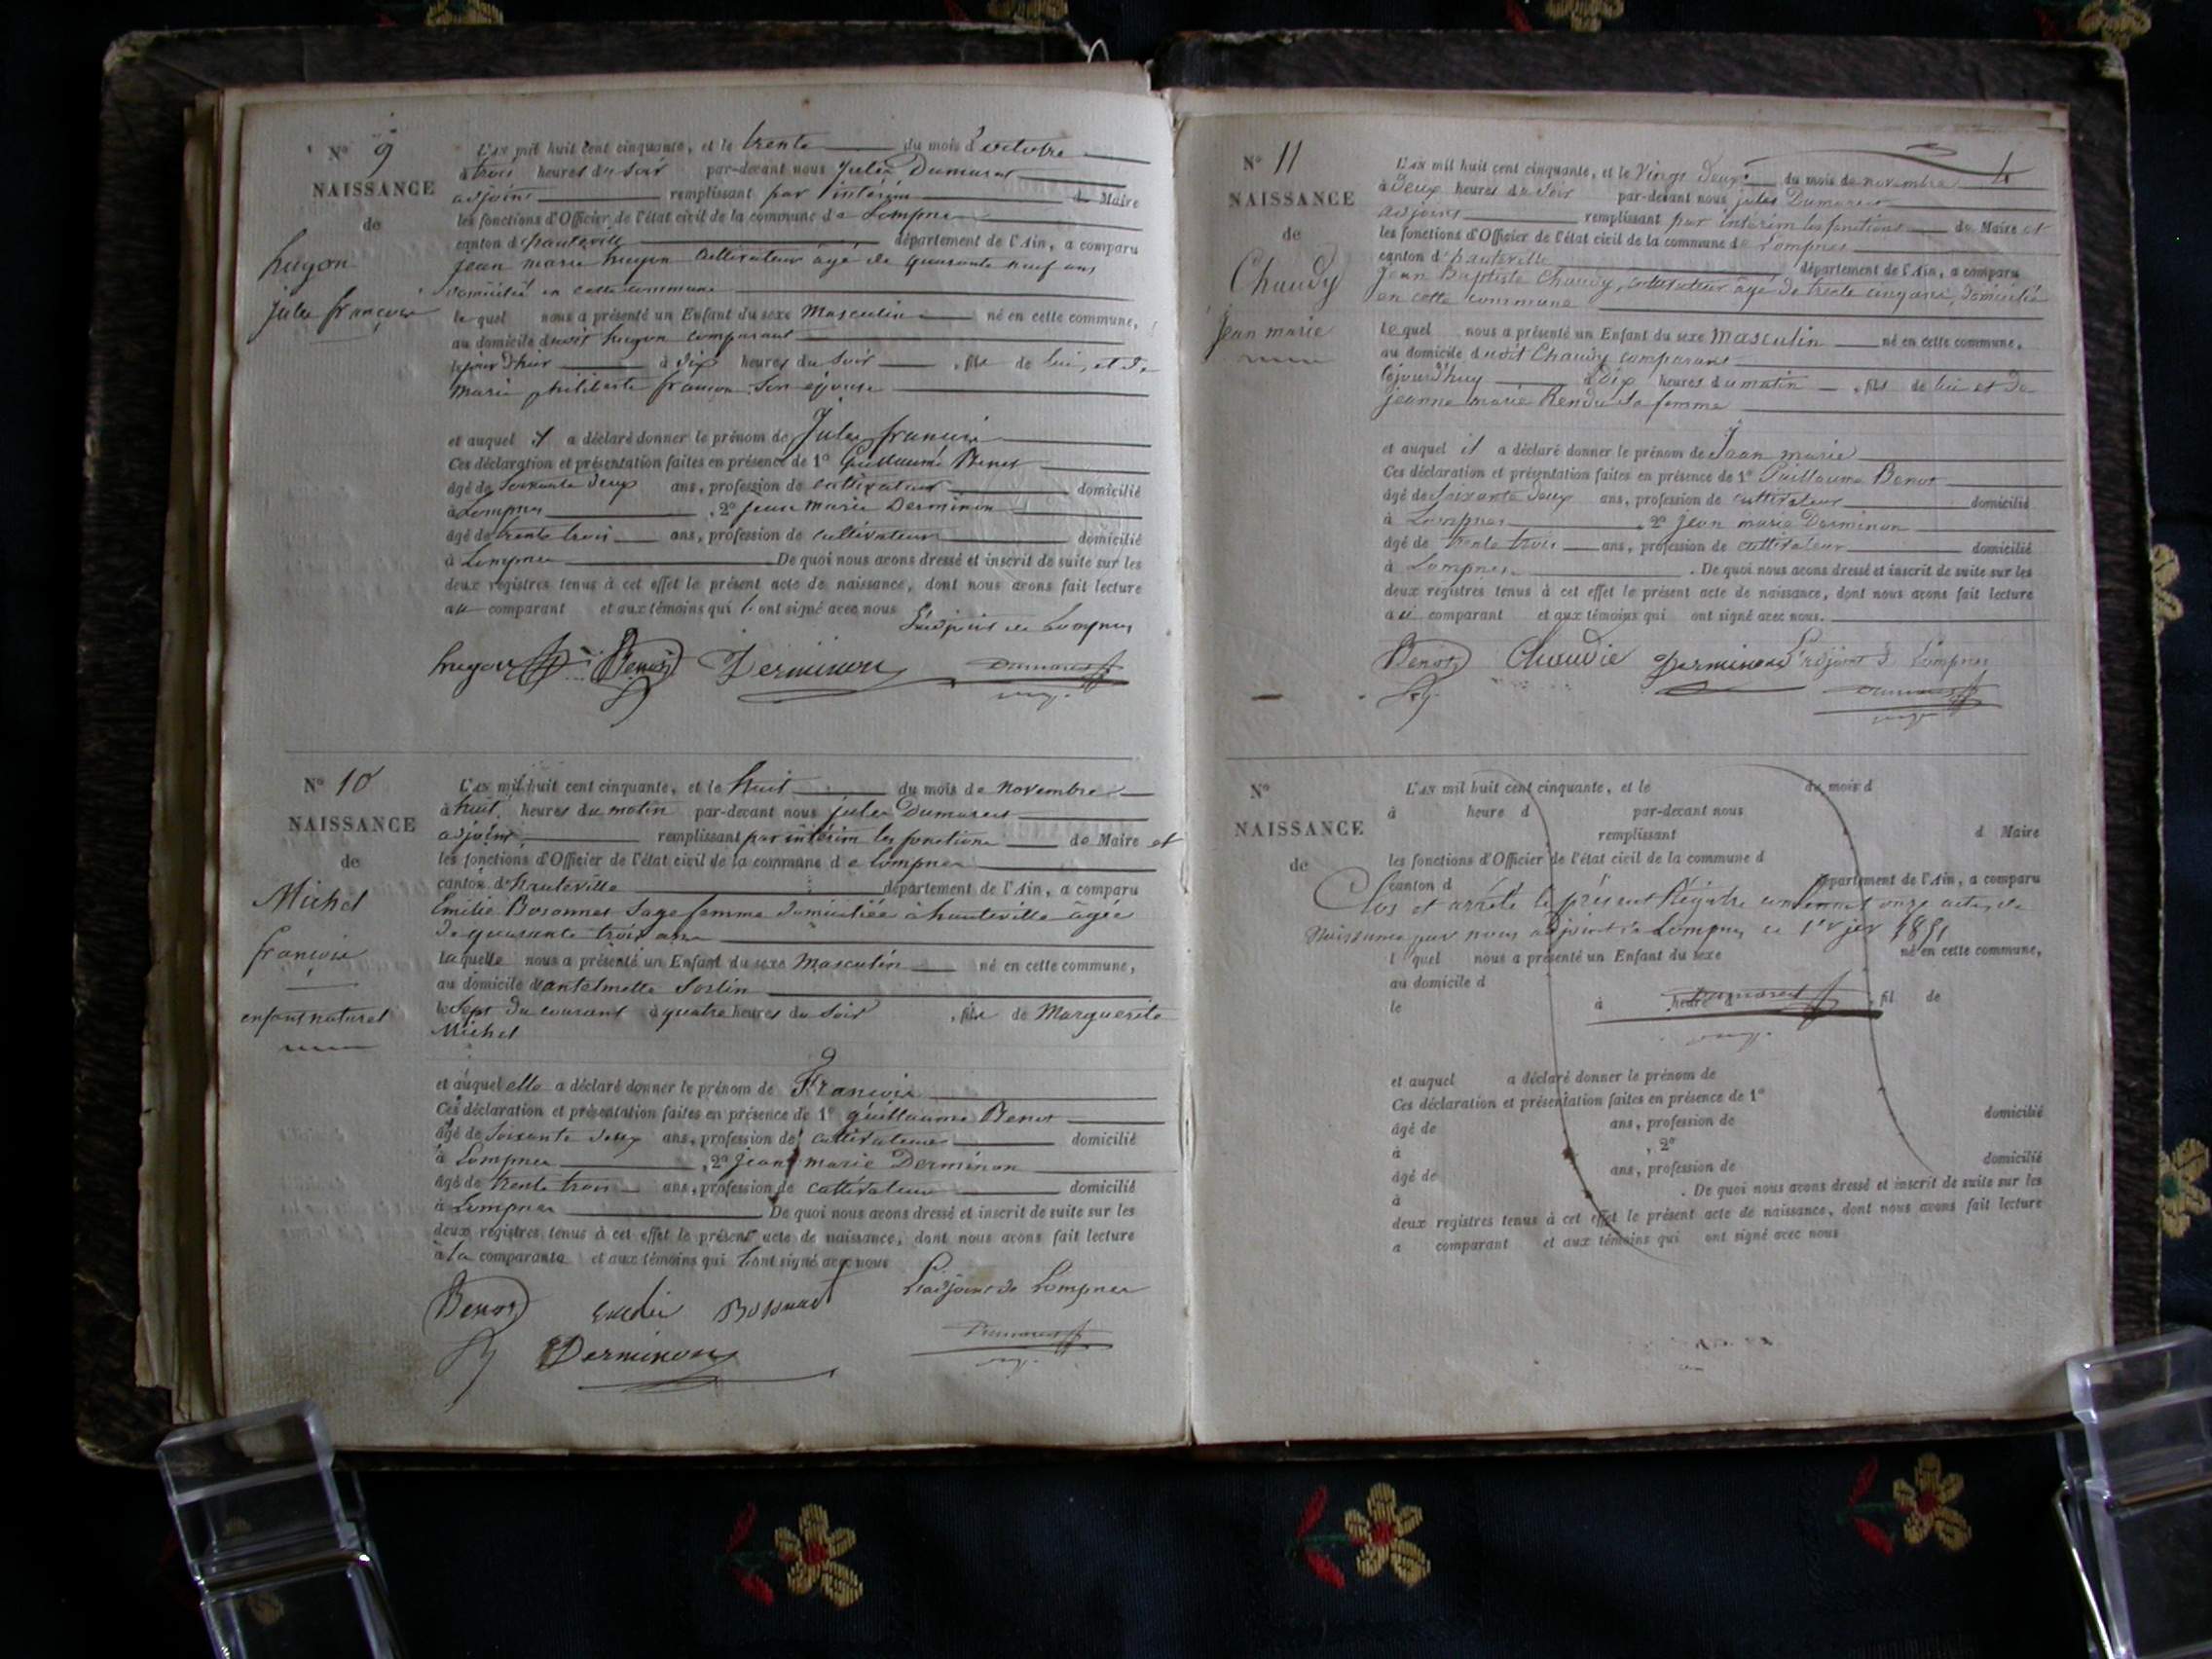 N° 9
NAISSANCE
de
hugon
jules françois
L'AN mil huit cent cinquante, et le trente du mois d'octobre
à trois heures du soir par-devant nous Jules Dumarest
adjoint remplissant par intérim de Maire
les fonctions d'Officier de l'état civil de la commune de Lompnes
canton d'hauteville département de l'Ain, a comparu
jean marie hugon cultivateur âgé de quarante neuf ans
domicilié en cette commune
lequel nous a présenté un Enfant du sexe Masculin né en cette commune,
au domicile dudit hugon comparant
le jour d'hier à dix heures du soir, fils de lui, et de
marie philiberte françon son épouse
et auquel il a déclaré donner le prénom de Jules françois
Ces déclaration et présentation faites en présence de 1° Guillaume Benot
âgé de soixante deux ans, profession de cultivateur domicilié
à Lompnes, 2° jean marie Derminon
âgé de trente trois ans, profession de cultivateur domicilié
à Lompnes De quoi nous avons dressé et inscrit de suite sur les
deux registres tenus à cet effet le présent acte de naissance, dont nous avons fait lecture
au comparant et aux témoins qui l'ont signé avec nous
L'adjoint de Lompnes
hugon Benot Derminon Dumarest
N° 10
NAISSANCE
de
Michel
françois
enfant naturel
L'AN mil huit cent cinquante, et le huit du mois de novembre
à huit heures du matin par-devant nous jules Dumarest
adjoint, remplissant par intérim les fonctions de Maire et
les fonctions d'Officier de l'état civil de la commune de Lompnes
canton d'hauteville département de l'Ain, a comparu
Emilie Bosonnet Sage femme domiciliée à hauteville âgée
de quarante trois ans
laquelle nous a présenté un Enfant du sexe Masculin né en cette commune,
au domicile d'antelmette Sorlin
le Sept du courant à quatre heures du soir, fils de Marguerite
Michel
et auquel elle a déclaré donner le prénom de François
Ces déclaration et présentation faites en présence de 1° guillaume Benot
âgé de soixante deux ans, profession de cultivateur domicilié
à Lompnes, 2° jean marie Derminon
âgé de trente trois ans, profession de cultivateur domicilié
à Lompnes De quoi nous avons dressé et inscrit de suite sur les
deux registres tenus à cet effet le présent acte de naissance, dont nous avons fait lecture
à la comparante et aux témoins qui l'ont signé avec nous
L'adjoint de Lompnes
Benot
Derminon
Dumarest
4
N° 11
NAISSANCE
de
Chaudy
jean marie
L'AN mil huit cent cinquante, et le Vingt deux du mois de novembre
à Deux heures du soir par-devant nous jules Dumarest
adjoint remplissant par intérim les fonctions de Maire et
les fonctions d'Officier de l'état civil de la commune de Lompnes
canton d'hauteville département de l'Ain, a comparu
Jean Baptiste Chaudy, cultivateur âgé de trente cinq ans, domicilié
en cette commune
lequel nous a présenté un Enfant du sexe Masculin né en cette commune,
au domicile dudit Chaudy comparant
à Dix heures du matin, fils de lui et de
jeanne marie Rendu sa femme
et auquel il a déclaré donner le prénom de Jean marie
Ces déclaration et présentation faites en présence de 1° Guillaume Benot
âgé de soixante deux ans, profession de cultivateur domicilié
à Lompnes, 2° jean marie Derminon
âgé de trente trois ans, profession de cultivateur domicilié
à Lompnes. De quoi nous avons dressé et inscrit de suite sur les
deux registres tenus à cet effet le présent acte de naissance, dont nous avons fait lecture
au comparant et aux témoins qui ont signé avec nous.
Benot Chaudie Derminon L'adjoint d Lompnes
Dumarest
N°
NAISSANCE
de
L'AN mil huit cent cinquante, et le du mois d
à heure d par-devant nous
remplissant d Maire
les fonctions d'Officier de l'état civil de la commune d
canton d département de l'Ain, a comparu
Clos et arrêté le présent Régistre contenant onze actes de
Naissance par nous adjoint de Lompnes ce 1er jer 1851
l quel nous a présenté un Enfant du sexe né en cette commune,
au domicile d
le à heure d , fil de
Dumarest
et auquel a déclaré donner le prénom de
Ces déclaration et présentation faites en présence de 1°
âgé de ans, profession de domicilié
à , 2°
âgé de ans, profession de domicilié
à . De quoi nous avons dressé et inscrit de suite sur les
deux registres tenus à cet effet le présent acte de naissance, dont nous avons fait lecture
a comparant et aux témoins qui ont signé avec nous